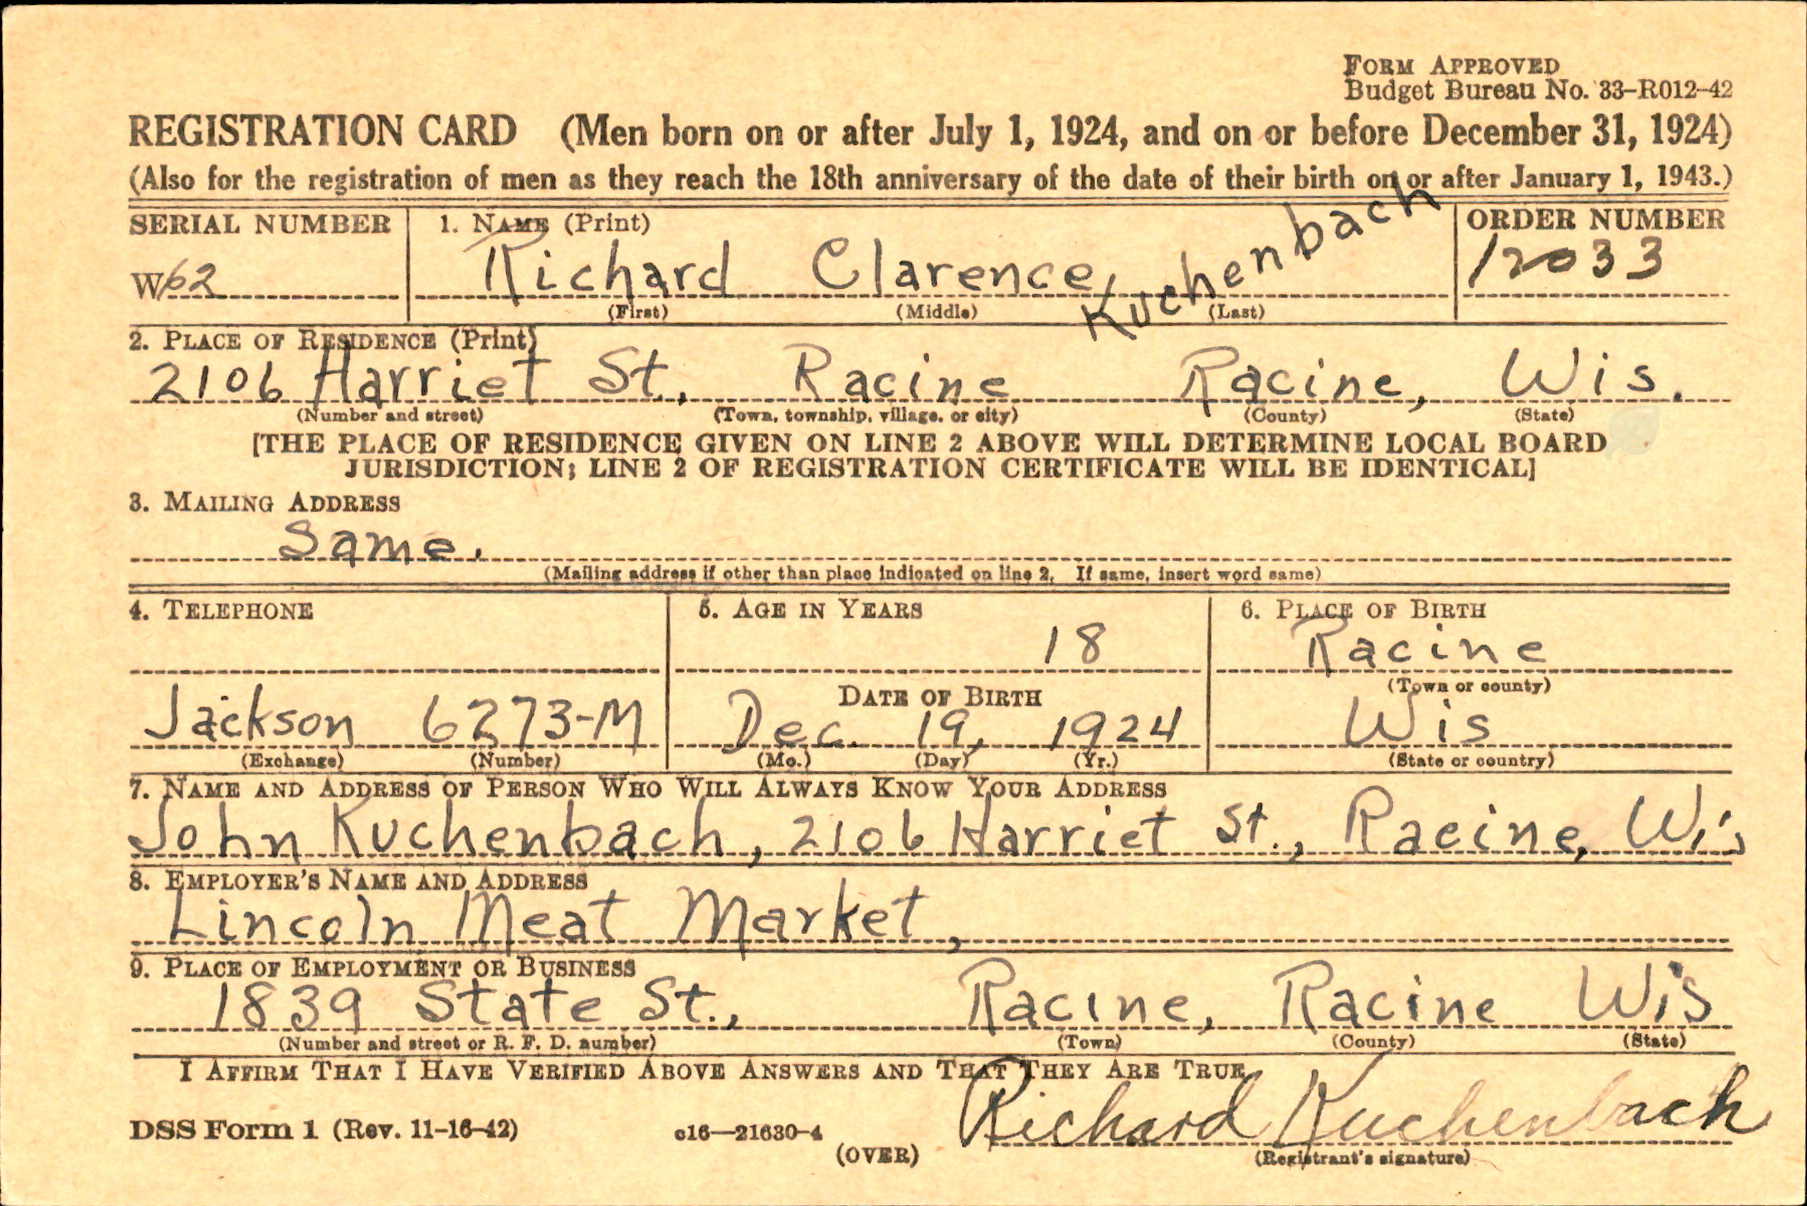 FORM APPROVED
Budget Bureau No. 33–R012–42
REGISTRATION CARD (Men born on or after July 1, 1924, and on or before December 31, 1924)
(Also for the registration of men as they reach the 18th anniversary of the date of their birth on or after January 1, 1943.)
SERIAL NUMBER 1. NAME (Print) ORDER NUMBER
W 62 Richard Clarence Kuchenbach 12033
(First) (Middle) (Last)
2. PLACE OF RESIDENCE (Print)
2106 Harriet St., Racine Racine, Wis.
(Number and street) (Town, township, village, or city) (County) (State)
[THE PLACE OF RESIDENCE GIVEN ON LINE 2 ABOVE WILL DETERMINE LOCAL BOARD
JURISDICTION; LINE 2 OF REGISTRATION CERTIFICATE WILL BE IDENTICAL]
3. MAILING ADDRESS
Same.
(Mailing address if other than place indicated on line 2. If same, insert word same)
4. TELEPHONE 5. AGE IN YEARS 6. PLACE OF BIRTH
18 Racine
DATE OF BIRTH (Town or county)
Jackson 6273-M Dec. 19, 1924 Wis
(Exchange) (Number) (Mo.) (Day) (Yr.) (State or country)
7. NAME AND ADDRESS OF PERSON WHO WILL ALWAYS KNOW YOUR ADDRESS
John Kuchenbach, 2106 Harriet St., Racine, Wis
8. EMPLOYER'S NAME AND ADDRESS
Lincoln Meat Market,
9. PLACE OF EMPLOYMENT OR BUSINESS
1839 State St., Racine, Racine Wis
(Number and street or R. F. D. number) (Town) (County) (State)
I AFFIRM THAT I HAVE VERIFIED ABOVE ANSWERS AND THAT THEY ARE TRUE
DSS Form 1 (Rev. 11-16-42) c16—21630-4 Richard Kuchenbach
(OVER) (Registrant's signature)